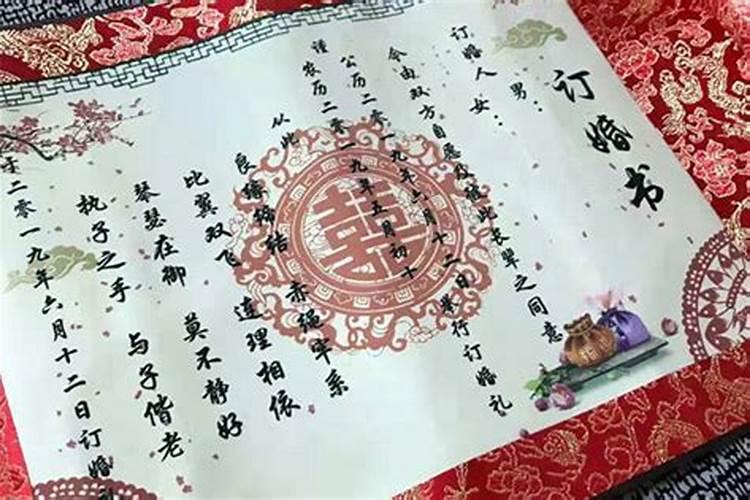 订婚书
男：
订婚人女：
今由双方自愿及彼此长辈之同意
公历二零一九年六月十二日举行订婚礼
谨农历二零一九年五月初十
从此
良缘缔结 赤绳牢系
比翼双飞 连理相依
琴瑟在御 莫不静好
执子之手 与子偕老
于二零一九年六月十二日订婚
囍